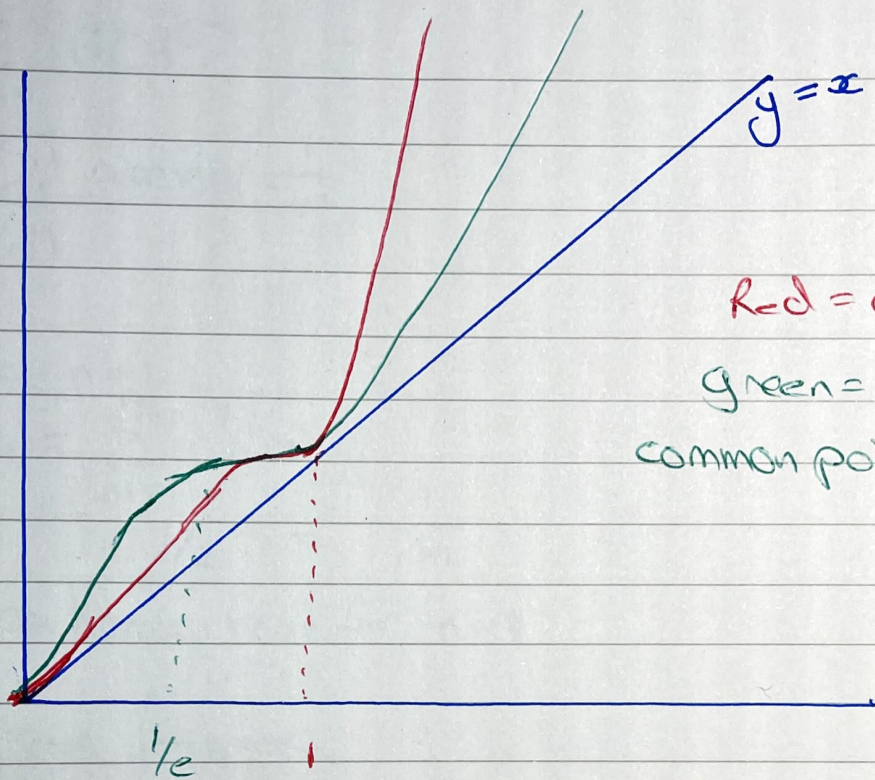 y = x
Red =
green =
common
1/e 1